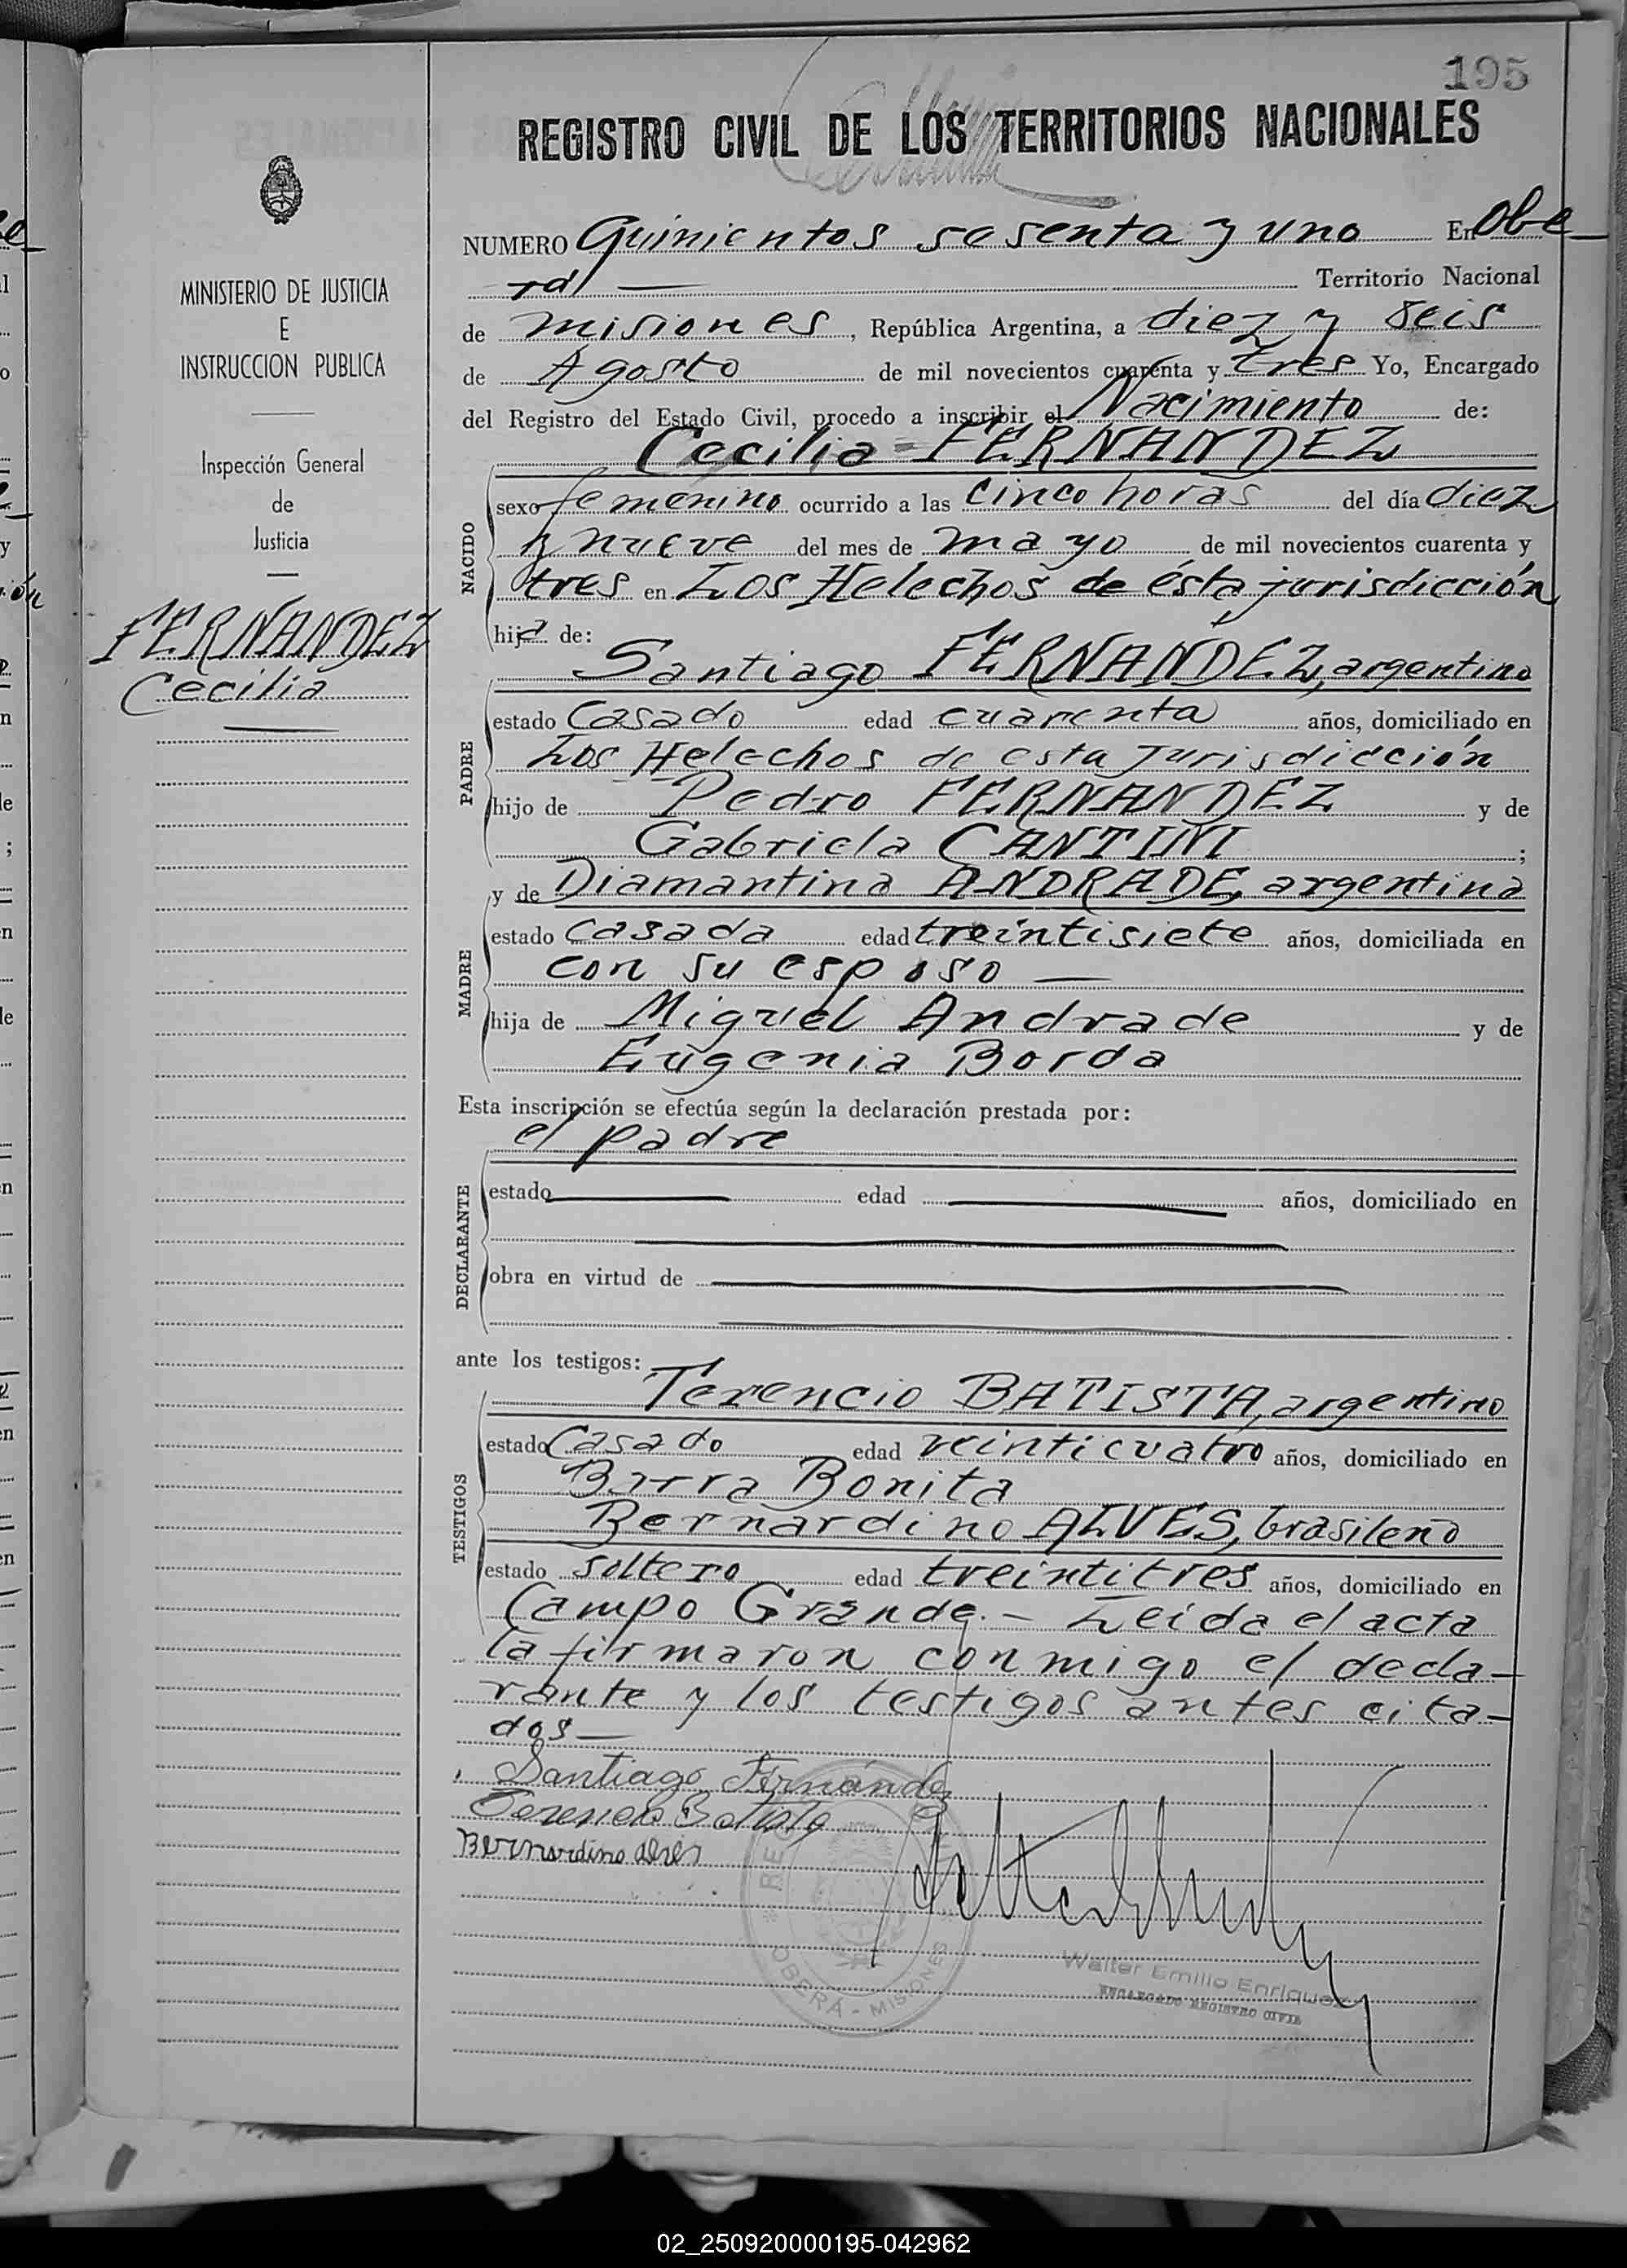 195
REGISTRO CIVIL DE LOS TERRITORIOS NACIONALES
MINISTERIO DE JUSTICIA
E
INSTRUCCION PUBLICA
Inspección General
de
Justicia
FERNANDEZ
Cecilia
NUMERO Quinientos sesenta y uno En Obe-
rá Territorio Nacional
de misiones, República Argentina, a diez y seis
de Agosto de mil novecientos cuarenta y tres Yo, Encargado
del Registro del Estado Civil, procedo a inscribir el Nacimiento de:
Cecilia FERNANDEZ
NACIDO
sexo femenino ocurrido a las cinco horas del día diez
y nueve del mes de mayo de mil novecientos cuarenta y
tres en Los Helechos de ésta jurisdicción
hija de:
Santiago FERNANDEZ, argentino
PADRE
estado Casado edad cuarenta años, domiciliado en
Los Helechos de esta Jurisdicción
hijo de Pedro FERNANDEZ y de
Gabriela CANTINI;
y de Diamantina ANDRADE, argentina
MADRE
estado casada edad treintisiete años, domiciliada en
con su esposo —
hija de Miguel Andrade y de
Eugenia Borda
Esta inscripción se efectúa según la declaración prestada por:
el padre
DECLARANTE
estado edad años, domiciliado en
obra en virtud de
ante los testigos:
Terencio BATISTA, argentino
TESTIGOS
estado Casado edad veinticuatro años, domiciliado en
Barra Bonita
Bernardino ALVES, brasileño
estado soltero edad treintitres años, domiciliado en
Campo Grande. — Leida el acta
la firmaron conmigo el decla-
rante y los testigos antes cita-
dos —
Santiago Fernández
Terencio Batista
Bernardino Alves
OBERÁ - MISIONES
Walter Emilio Enriquez
ENCARGADO REGISTRO CIVIL
02_250920000195-042962